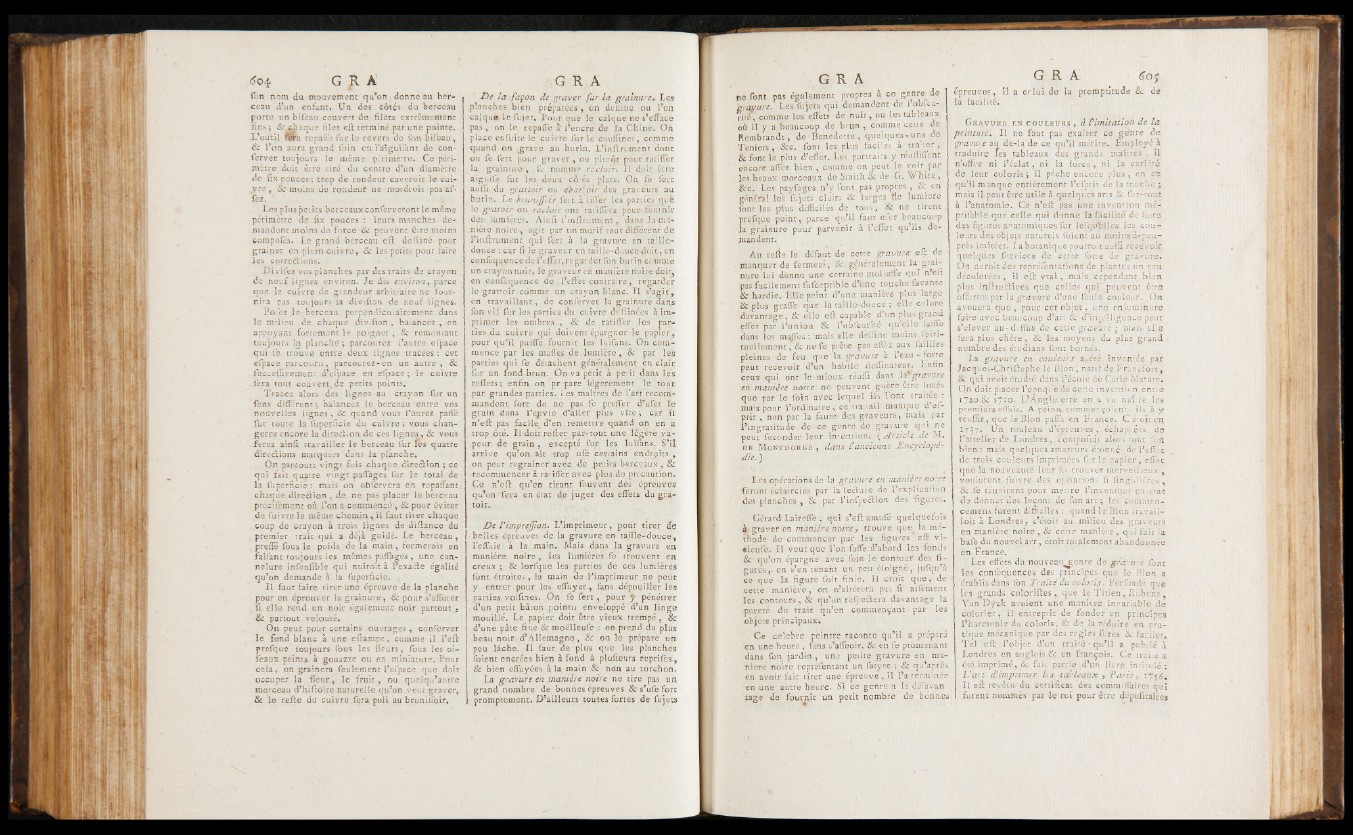 604 G R A
son nom du mouvement qu'on donne au ber-
ceau d'un enfant. Un des côtés du berceau
porte un bifeau couvert de filets extrêmement
fins; & chaque filet est terminé par une pointe.
L'outil sera repassé sur le revers de son biseau,
& l'on aura grand soin en l'aiguisant de con-
server toujours le même périmètre. Ce péri-
mètre doit être tiré du centre d'un diamètre
de six pouces: trop de rondeur caveroit le cui-
vre, & moins de rondeur ne mordroit pas as-
sez.
Les plus petits berceaux conserveront le même
périmètre de six pouces : leurs manches de-
mandent moins de force & peuvent être moins
composés. Le grand berceau est destiné pour
grainer en plein cuivre, & les petits pour faire
les corrections.
Divisez vos planches par des traits de crayon
de neuf lignes environ. Je dis environ, parce
que le cuivre de grandeur arbitraire ne four-
nira pas toujours la division de neuf lignes.
Posez le berceau perpendiculairement dans
le milieu de chaque division, balancez, en
appuyant fortement le poignet, & remontant
toujours la planche; parcourez l'autre espace
qui se trouve entre deux lignes tracées: cet
espace parcouru, parcourez-en un autre, &
successivement d'espace en espace; le cuivre
sera tout couvert de petits points.
Tracez alors des lignes au crayon sur un
sens différent; balancez le berceau entre vos
nouvelles lignes, & quand vous l'aurez passé
sur toute la superficie du cuivre; vous chan-
gerez encore la direction de ces lignes, & vous
ferez ainsi travailler le berceau sur les quatre
directions marquées dans la planche.
On parcourt vingt fois chaque direction; ce
qui fait quatre vingt passages sur le total de
la superficie: mais on observera en repassant
chaque direction, de ne pas placer le berceau
précisément où l'on a commencé, & pour éviter
de suivre le même chemin, il faut tirer chaque
coup de crayon à trois lignes de distance du
premier trait qui a déjà guidé. Le berceau,
pressé sous le poids de la main, formeroit en
faisant toujours les mêmes passages, une can-
nelure insensible qui nuiroit à l'exacte égalité
qu'on demande à la superficie.
Il faut faire tirer une épreuve de la planche
pour en éprouver la grainure, & pour s'assurer
si elle rend un noir également noir partout,
& partout velouté.
On peut pour certains ouvrages, conserver
le fond blanc à une estampe, comme il l'est
presque toujours sous les fleurs, sous les oi-
seaux peints à gouazze ou en miniature. Pour
cela, on grainera seulement l'espace que doit
occuper la fleur, le fruit, ou quelqu'autre
morceau d'histoire naturelle qu'on veut graver,
& le reste du cuivre sera poli au brunissoir.
G R A
De la façon de graver sur la grainure. Les
planches bien préparées, on dessine ou l'on
calque le sujet. Pour que le calque ne s'efface
pas, on le repasse à l'encre de la Chine. On
place ensuite le cuivre sur le coussinet, comme
quand on grave au burin. L'instrument dont
on se sert pour graver, ou plutôt pour ratisser
la grainure, se nomme racloir. Il doit être
aiguisé sur ses deux côtés plats. On se sert
aussi du grattoir ou ébarboir des graveurs au
burin. Le brunissoir sert à lisser les parties que
le grattoir ou racloir ont ratissées pour fournir
des lumières. Ainsi l'instrument, dans la ma-
nière noire, agit par un motif tout différent de
l'instrument qui sert à la gravure en taille-
douce: car si le graveur en taille-douce doit, en
conséquence de l'effet, regarder son burin comme
un crayon noir, le graveur en manière noire doit,
en conséquence de l'effet contraire, regarder
le grattoir comme un crayon blanc. Il s'agit,
en travaillant, de conserver la grainure dans
son vif sur les parties du cuivre destinées à im-
primer les ombres, & de ratisser les par-
ties du cuivre qui doivent épargner le papier,
pour qu'il puisse fournir les luisans. On com-
mence par les masses de lumière, & par les
parties qui se détachent généralement en clair
sur un fond brun. On va petit à petit dans les
reflets; enfin on prépare légèrement le tout
par grandes parties. Les maîtres de l'art recom-
mandent fort de ne pas se presser d'user le
grain dans l'envie d'aller plus vîte; car il
n'est pas facile d'en remettre quand on en a
trop ôté. Il doit rester par-tout une légère va-
peur de grain, excepté sur les luisans. S'il
arrive qu'on ait trop usé certains endroits,
on peut regrainer avec de petits berceaux, &
recommencer à ratisser avec plus de précaution.
Ce n'est qu'en tirant souvent des épreuves
qu'on sera en état de juger des effets du grat-
toir.
De l'impression. L'imprimeur, pour tirer de
belles épreuves de la gravure en taille-douce,
l'essuie à la main. Mais dans la gravure en
manière noire, les lumières se trouvent en
creux; & lorsque les parties de ces lumières
sont étroites, la main de l'imprimeur ne peut
y entrer pour les essuyer, sans dépouiller les
parties voisines. On se sert, pour y pénétrer
d'un petit bâton pointu enveloppé d'un linge
mouillé. Le papier doit être vieux trempé, &
d'une pâte fine & moëlleuse: on prend du plus
beau noir d'Allemagne, & on le prépare un
peu lâche. Il faut de plus que les planches
soient encrées bien à fond à plusieurs reprises,
& bien essuyées à la main & non au torchon.
La gravure en manière noire ne tire pas un
grand nombre de bonnes épreuves & s'use fort
promptement. D'ailleurs toutes sortes de sujets
G R A
ne sont pas également propres à ce genre de
gravure. Les sujets qui demandent de l'obscu-
rité, comme les effets de nuit, ou les tableaux
où il y a beaucoup de brun, comme ceux de
Rembrandt, de Benedette, quelques-uns de
Teniers, &c. sont les plus faciles à traiter,
& font le plus d'effet. Les portraits y réussissent
encore assez bien, comme on peut le voir par
les beaux morceaux de Smith & de G. White,
&c. Les paysages n'y sont pas propres, & en
général les sujets clairs & larges de lumière
sont les plus difficiles de tous, & ne tirent
presque point, parce qu'il faut user beaucoup
la grainure pour parvenir à l'effet qu'ils de-
mandent.
Au reste le défaut de cette gravure est de
manquer de fermeté, & généralement la grai-
nure lui donne une certaine mollesse qui n'est
pas facilement susceptible d'une touche savante
& hardie. Elle peint d'une manière plus large
& plus grasse que la taille-douce; elle colore
davantage; & elle est capable d'un plus grand
effet par l'union & l'obscurité qu'elle laisse
dans les masses: mais elle dessine moins spiri-
tuellement, & ne se prête pas assez aux saillies
pleines de feu que la gravure à l'eau-forte
peut recevoir d'un habile dessinateur. Enfin
ceux qui ont le mieux réussi dans la gravure
en manière noire ne peuvent guère être loués
que par le soin avec lequel ils l'ont traitée:
mais pour l'ordinaire, ce travail manque d'es-
prit, non par la faute des graveurs, mais par
l'ingratitude de ce genre de gravure qui ne
peut seconder leur intention. (Article de M.
DE MONTDORGE, dans l'ancienne Encyclopé-
die.)
Les opérations de la gravure en manière noire
seront éclaircies par la lecture de l'explication
des planches, & par l'inspection des figures.
Gérard Lairesse, qui s'est amusé quelquefois
à graver en manière noire, trouve que la mé-
thode de commencer par les figures est vi-
cieuse. Il veut que l'on fasse d'abord les fonds
& qu'on épargne avec soin le contour des fi-
gures, en s'en tenant un peu éloigné, jusqu'à
ce que la figure soit finie. Il croit que, de
cette manière, on n'altérera pas si aisément
les contours, & qu'on respectera davantage la
pureté du trait qu'en commençant par les
objets principaux.
Ce celebre peintre raconte qu'il a préparé
en une heure, sans s'asseoir, & en se promenant
dans son jardin, une petite gravure en ma-
nière noire représentant un satyre; & qu'après
en avoir fait tirer une épreuve, il l'a terminée
en une autre heure. Si ce genre a le désavan-
tage de fournir un petit nombre de bonnes
G R A 605
épreuves, il a celui de la promptitude & de
la facilité.
GRAVURE EN COULEURS, à l'imitation de la
peinture. Il ne faut pas exalter ce genre de
gravure au de-la de ce qu'il mérite. Employé à
traduire les tableaux des grands maîtres, il
n'offre ni l'éclat, ni la force, ni la variété
de leur coloris; il pèche encore plus, en ce
qu'il manque entièrement l'esprit de la touche;
mais il peut être utile à quelques arts & sur-tout
à l'anatomie. Ce n'est pas une invention mé-
prisable que celle qui donne la facilité de faire
des figures anatomiques sur lesquelles les cou-
leurs des objets naturels soient au moins à-peu-
près imitées. La botanique pourroit aussi recevoir
quelques services de cette sorte de gravure.
On auroit des représentations de plantes un peu
décolorées, il est vrai, mais cependant bien
plus instructives que celles qui peuvent être
offertes par la gravure d'une seule couleur. On
avouera que, pour cet objet, une enluminure
faite avec beaucoup d'art & d'intelligence peut
s'élever au-dessus de cette gravure; mais elle
sera plus chère, & les moyens du plus grand
nombre des étudians sont bornés.
La gravure en couleurs a été inventée par
Jacques-Christophe le Blon, natif de Francfort,
& qui avoit étudié dans l'école de Carlo Maratte.
On doit placer l'époque de cette invention entre
1720 & 1730. L'Angleterre en a vu naître les
premiers essais. A peine commençoient-ils à y
réussir, que le Blon passa en France. C'étoit en
1737. Un rouleau d'épreuves, échappées de
l'attelier de Londres, composoit alors tout son
bien: mais quelques amateurs étonnés de l'effet
de trois couleurs imprimées sur le papier, effet
que la nouveauté leur fit trouver merveilleux,
voulurent suivre des opérations si singulières,
& se réunirent pour mettre l'inventeur en état
de donner des leçons de son art; les commen-
cemens furent difficiles: quand le Blon travail-
loit à Londres, c'étoit au milieu des graveurs
en manière noire, & cette manière, qui fait la
base du nouvel art, étoit totalement abandonnée
en France.
Les essais du nouveau genre de gravure sont
les conséquences des principes que le Blon a
établis dans son Traité du coloris. Persuadé que
les grands coloristes, que le Titien, Rubens,
Van Dyck avoient une manière invariable de
colorier, il entreprit de fonder en principes
l'harmonie du coloris, & de la réduire en pra-
tique mécanique par des regles sûres & faciles.
Tel est l'objet d'un traité qu'il a publié à
Londres en anglois & en françois. Ce traité a
été imprimé, & fait partie d'un livre intitulé:
L'art d'imprimer les tableaux, Paris, 1756.
Il est revêtu du certificat des commissaires qui
furent nommés par le roi pour être dépositaires